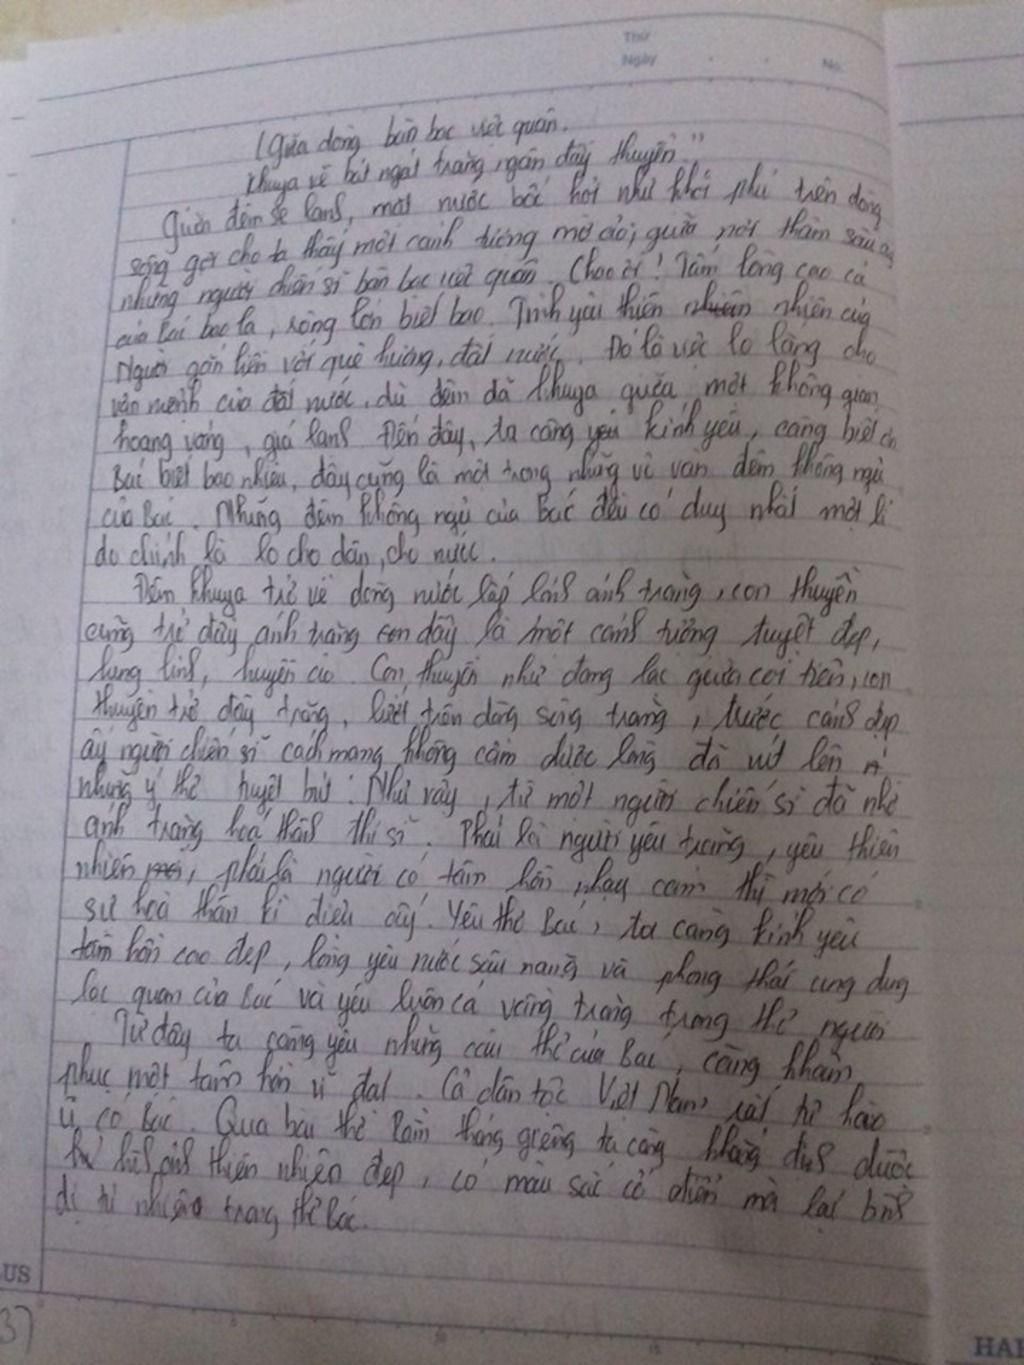 Thứ
Ngày No.
(Giữa dòng bàn bạc việc quân.
Khuya về bát ngát trăng ngân đầy thuyền"
Giữa đêm se lạnh, mặt nước bốc hơi như khói phủ trên dòng
sông gợi cho ta thấy một cảnh tượng mờ ảo, giữa nơi thâm sâu ấy
những người chiến sĩ bàn bạc việc quân. Chao ôi! Tấm lòng cao cả
của Bác bao la, rộng lớn biết bao. Tình yêu thiên nhiên của
Người gắn liền với quê hương, đất nước. Đó là việc lo lắng cho
vận mệnh của đất nước, dù đêm đã khuya giữa một không gian
hoang vắng, giá lạnh Đến đây, ta càng yêu kính yêu, càng biết ơn
Bác biết bao nhiêu, đây cũng là một trong những vì vạn đêm không ngủ
của Bác. Những đêm không ngủ của Bác đều có duy nhất một lí
do chính là lo cho dân, cho nước.
Đêm khuya trở về dòng nước lấp lánh ánh trăng, con thuyền
cũng trở đầy ánh trăng đây là một cảnh tượng tuyệt đẹp,
lung linh, huyền ảo Con thuyền như đang lạc giữa cõi tiên, con
thuyền trở đầy trăng, lướt trên dòng sông trăng, trước cảnh đẹp
ấy người chiến sĩ cách mạng không cầm được lòng đã viết lên
những ý thơ tuyệt bút: Như vậy, từ một người chiến sĩ đã nhờ
ánh trăng hoá thành thi sĩ. Phải là người yêu trăng, yêu thiên
nhiên, phải là người có tâm hồn nhạy cảm thì mới có
sự hoà thân kì diệu ấy. Yêu thơ Bác, ta càng kính yêu
tâm hồn cao đẹp, lòng yêu nước sâu nặng và phong thái ung dung
lạc quan của Bác và yêu luôn cả vầng trăng trong thơ người
Từ đây ta càng yêu những câu thơ của Bác, càng khâm
phục một tâm hồn vĩ đại. Cả dân tộc Việt Nam rất tự hào
vì có Bác. Qua bài thơ Rằm tháng giêng ta càng khẳng định được
hình ảnh thiên nhiên đẹp, có màu sắc cổ điển mà lại bình
dị tự nhiên trong thơ Bác.
US
37
HAI